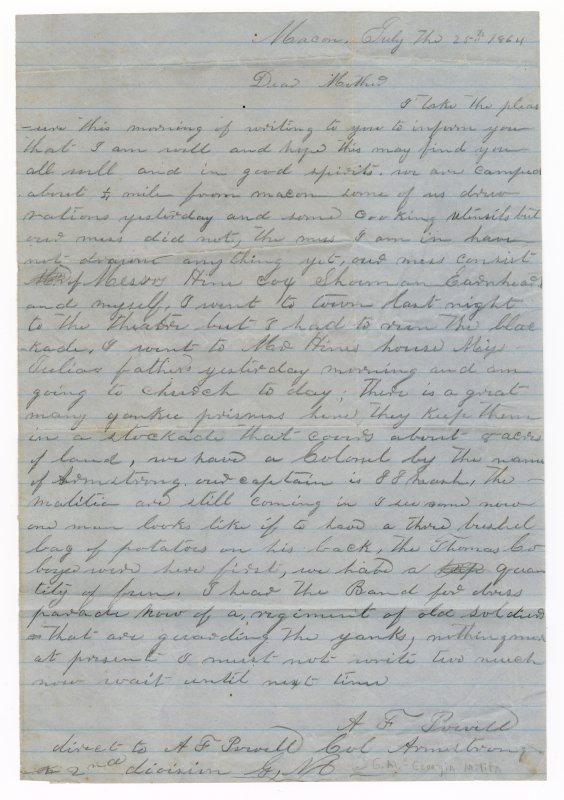 Macon, July the 25th 1864
Dear Mother
I take the pleas
-ure this morning of writing to you to inform you
that I am well and hope this may find you
all well and in good spirits. we are camped
about ½ mile from macon some of us drew
rations yesterday and some cooking utensils but
our mess did not, the mess I am in have
not drawn any thing yet, our mess consist
of Messrs Hine Cox Shouman Earnheart
and myself, I went to town last night
to the theatre but I had to run the bloc
-kade. I went to Mr Hines house Miss
Julias fathers yesterday morning and am
going to church to day, There is a great
many yankee prisners here they keep them
in a stockade that covers about 8 acres
of land, we have a Colonel by the name
of Armstrong. our captain is J J Mash, The
malitia are still coming in I see some now
one man looks like if to have a three bushel
bag of potatoes on his back, the Thomas Co
boys were here first, we have a quan
tity of fun. I hear the Band for dress
parade now of a regiment of old soldiers
that are guarding the yank, nothing more
at present I must not write two much
now wait until next time
A F Powell
direct to A F Powell Col Armstrong
2nd division G, M
G.M. - Georgia Militia